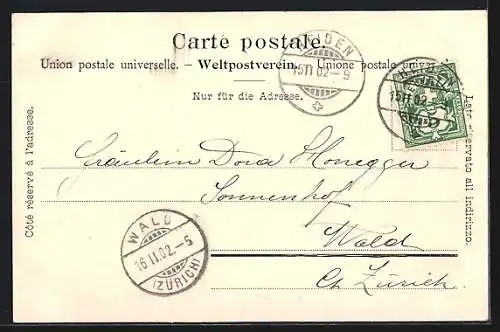 Carte postale.
Union postale universelle. — Weltpostverein. — Unione postale
Nur für die Adresse.
Côté réservé à l'adresse.
Lato riservato all indirizzo.
HEIDEN
15 II 02 - 9
HEIDEN
15 II 02 -
Fräulein Dora Honegger
Sonnenhof
Wald
Ct. Zürich
WALD
16 II 02. - 5
(ZÜRICH)